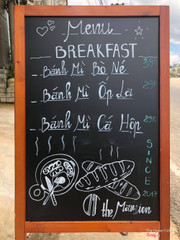 Menu
BREAKFAST
Bánh Mì Bò Né
Bánh Mì Ốp La
Bánh Mì Cá Hộp
SINCE
2017
the